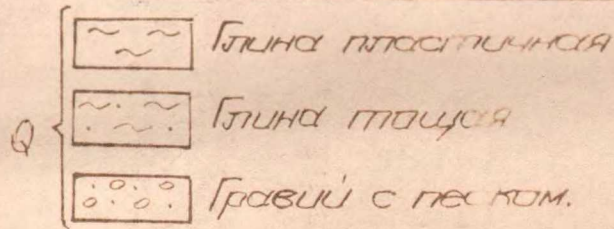 Глина пластичная
Q
Глина тощая
Гравий с песком.